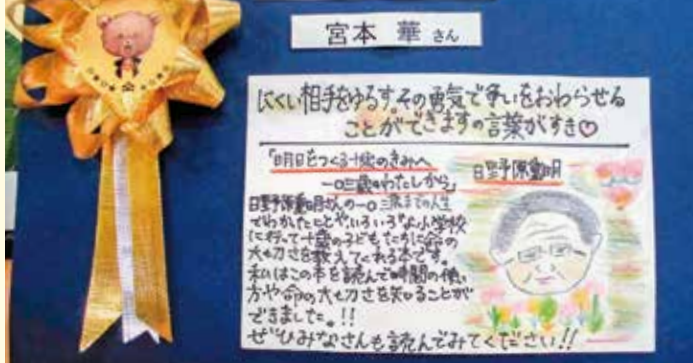 宮本 華 さん
にくい相手をゆるす。その勇気で争いをおわらせる
ことができますの言葉がすき♡
「明日をつくる十歳のきみへ
一〇三歳のわたしから」
日野原重明
日野原重明さんの一〇三歳までの人生
でわかったことや、いろいろな小学校
に行って十歳の子どもたちに命の
大切さを教えてくれる本です。
私はこの本を読んで時間の使い
方や命の大切さを知ることが
できました。!!
ぜひみなさんも読んでみてください!!